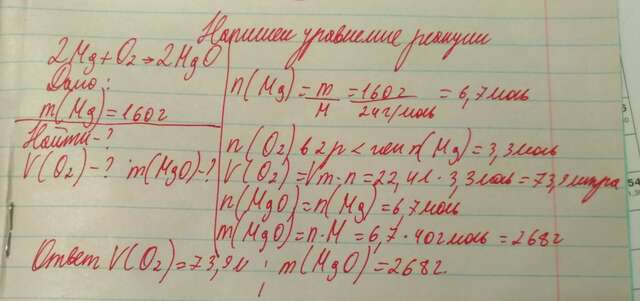 Напишем уравнение реакции
2Mg+O2→2MgO
Дано:
m(Mg)=160г
Найти-?
V(O2)-? m(MgO)-?
n(Mg)=m/M=160г/24г/моль=6,7моль
n(O2) в 2р<чем n(Mg)=3,3моль
V(O2)=Vm·n=22,4л·3,3моль=73,9литра
n(MgO)=n(Mg)=6,7моль
m(MgO)=n·M=6,7·40гмоль=268г
Ответ V(O2)=73,9л; m(MgO)=268г.
54